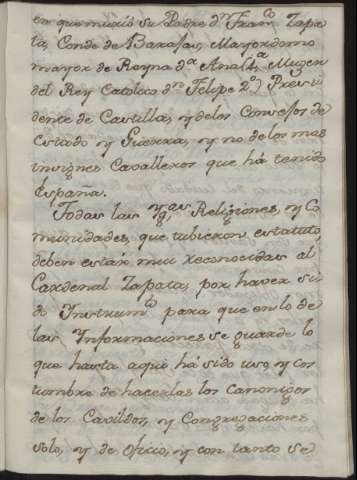 en que murió su Padre dⁿ Franᶜᵒ Zapa
ta, Conde de Baraxas, Mayordomo
mayor de Reyna dᵃ Ana 4ᵃ Muger
del Rey Catolico dⁿ Felipe 2º) Presi
dente de Castilla, y delos Consejos de
Estado y Guerra, y no de los mas
insignes Cavalleros que há tenido
España.
Todas las Ygᵃˢ Religiones, y Co
munidades, que tubieron estatuto,
deben estár mui reconocidas al
Cardenal Zapata, por haver si
do Instrumᵗᵒ para que en lo de
las Informaciones se guarde lo
que hasta aqui há sido uso, y cos
tumbre de hacerlas los Canonigos
de los Cavildos, y Congregaciones
solo, y de oficio, y con tanto se